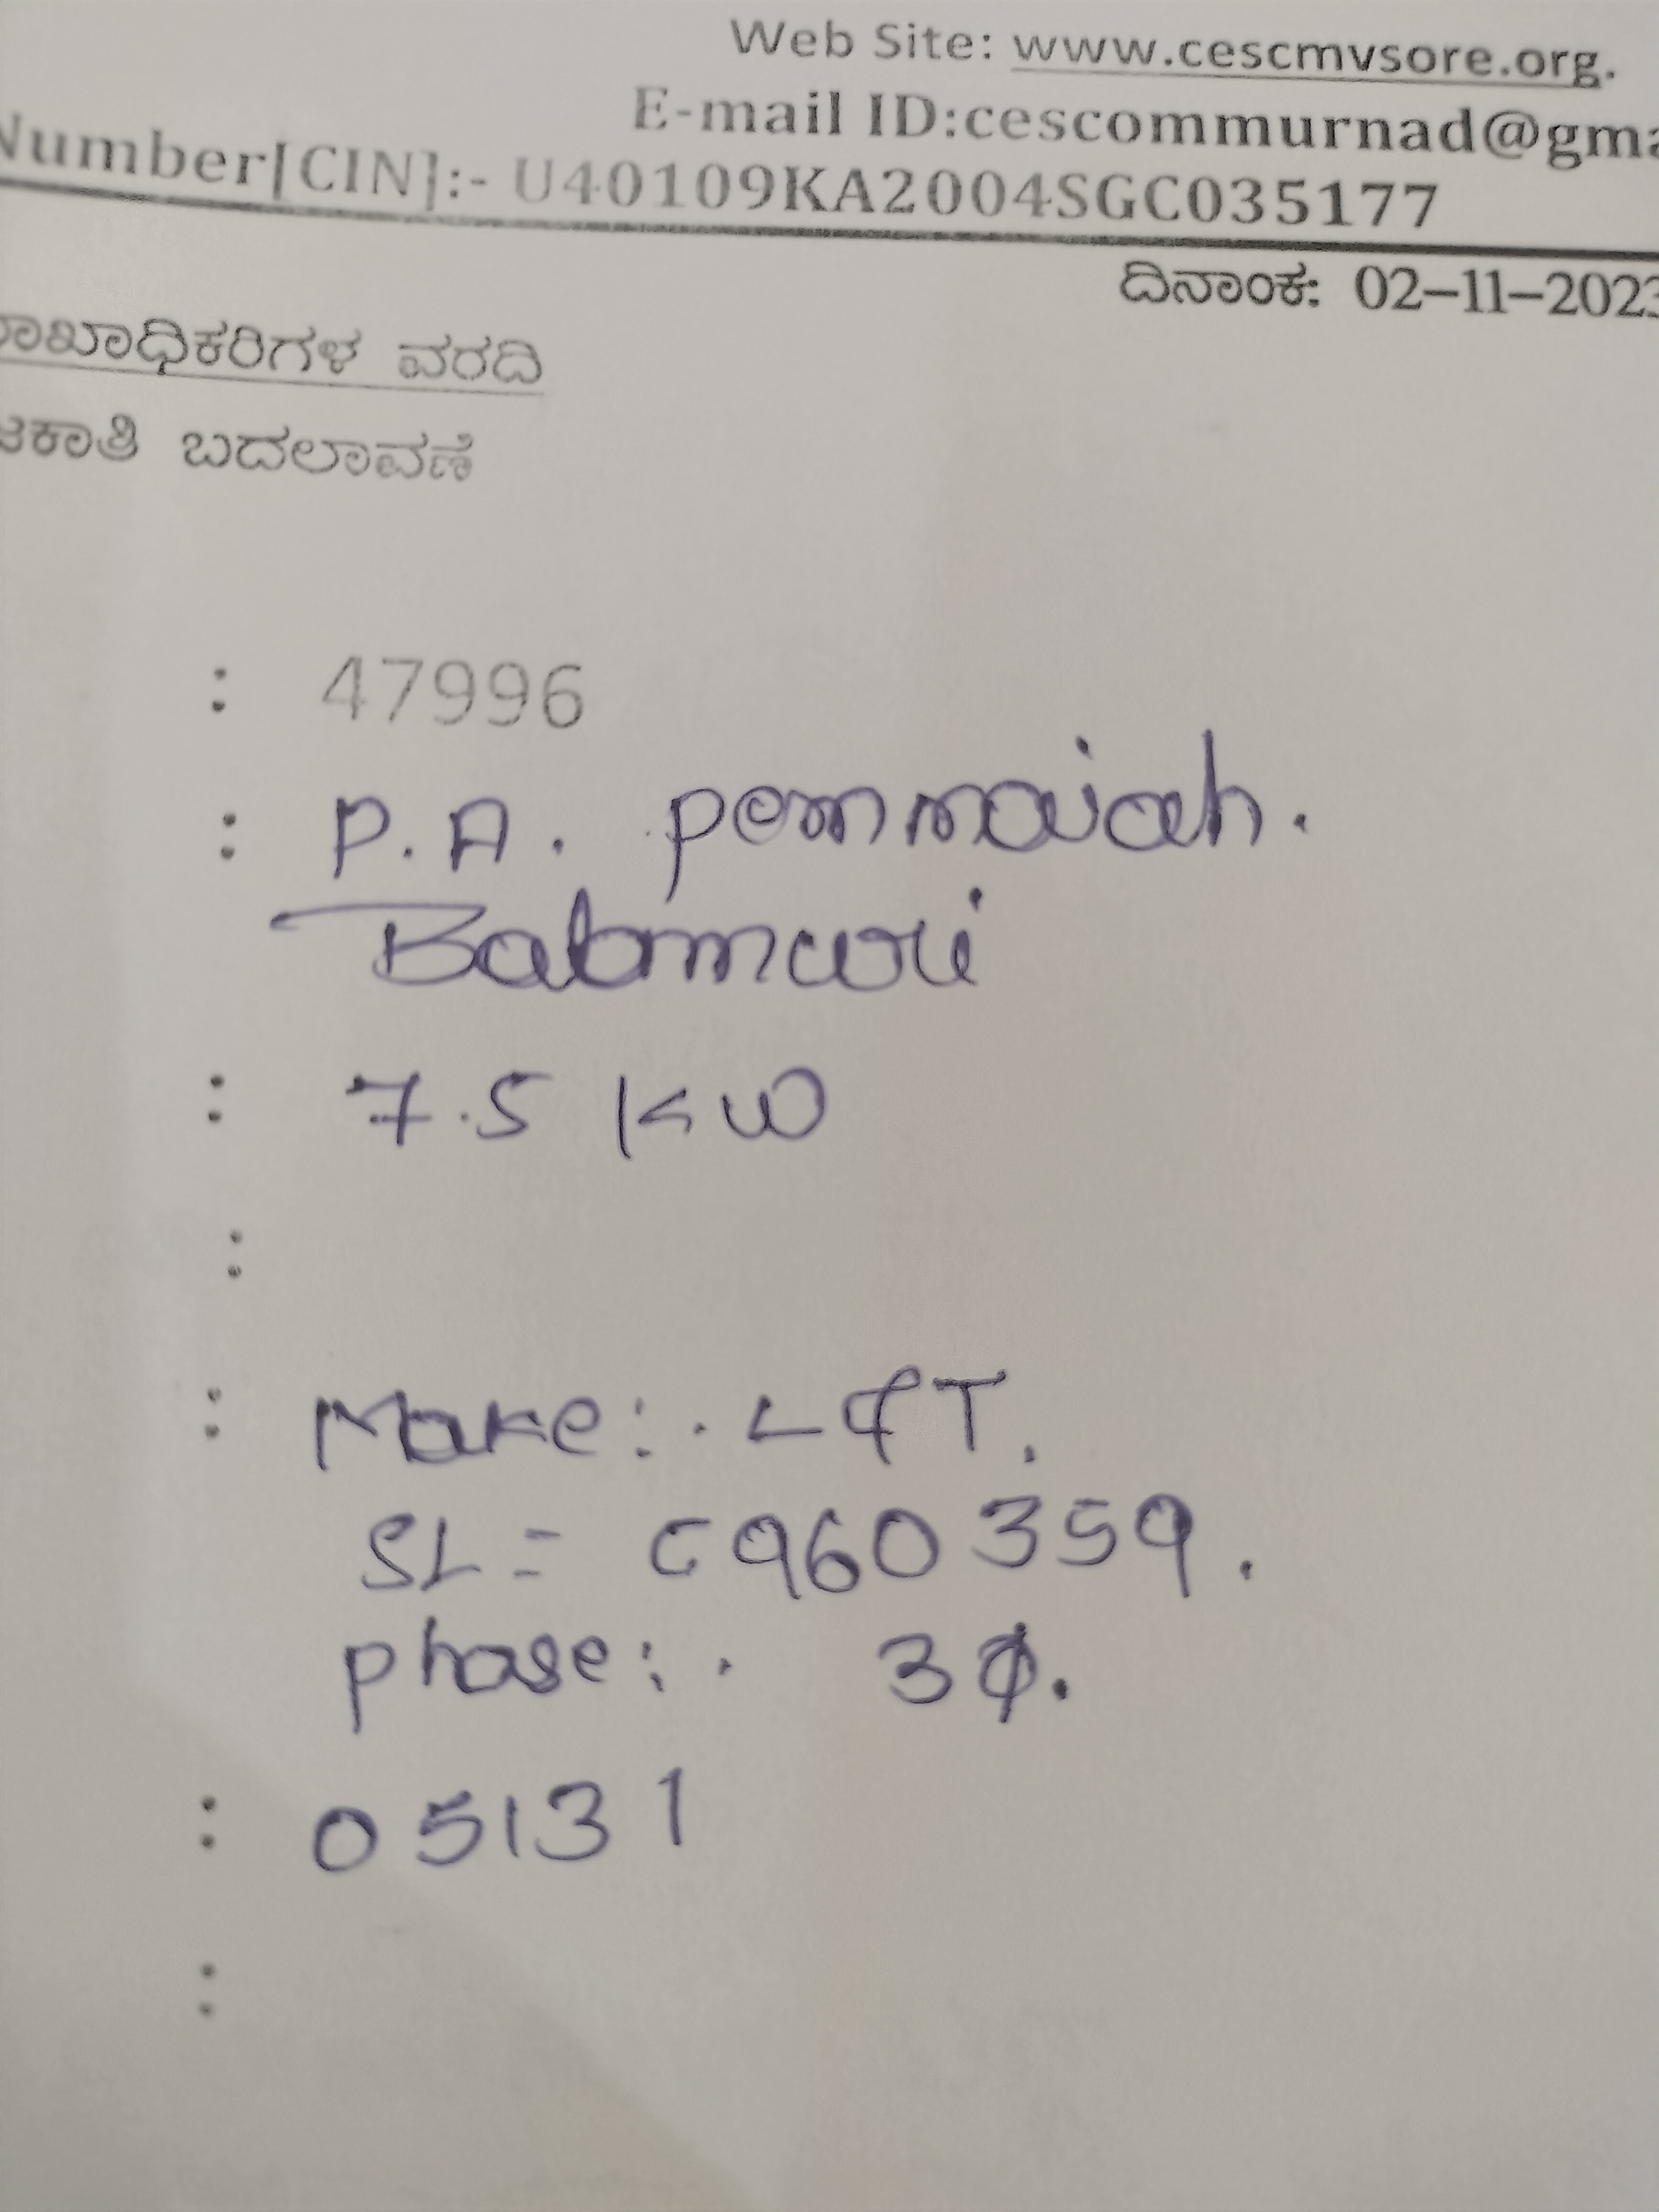 Web Site: www.cescmysore.org.
E-mail ID:cescommurnad@gma
Number[CIN]:- U40109KA2004SGC035177
ದಿನಾಂಕ: 02-11-2023
ಶಾಖಾಧಿಕಾರಿಗಳ ವರದಿ
ಜಕಾತಿ ಬದಲಾವಣೆ
: 47996
: P.A. pemmaiah.
Balamuri
: 7.5 KW
:
: Make:. L&T.
SL = C960359.
phase:. 3φ.
: 05131
: